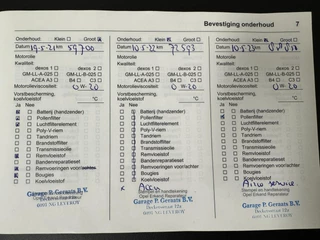 Bevestiging onderhoud 7
Onderhoud: Klein Groot
Datum 19-5-21 km 59700
Motorolie
Kwaliteit:
dexos 1 dexos 2
GM-LL-A-025 GM-LL-B-025
ACEA A3 B4 C3
Motorolieviscositeit: 0 W- 20
Vorstbescherming,
koelvloeistof °C
Ja Nee
Batterij (handzender)
Pollenfilter
Luchtfilterelement
Poly-V-riem
Tandriem
Brandstoffilter
Transmissieolie
Remvloeistof
Bandenreparatieset
Remvoeringen voor/achter
Bougies
Koelvloeistof
Garage P. Geraats B.V.
Onderhoud: Klein Groot
Datum 10-5-22 km 72593
Motorolie
Kwaliteit:
dexos 1 dexos 2
GM-LL-A-025 GM-LL-B-025
ACEA A3 B4 C3
Motorolieviscositeit: 0 W- 20
Vorstbescherming,
koelvloeistof °C
Ja Nee
Batterij (handzender)
Pollenfilter
Luchtfilterelement
Poly-V-riem
Tandriem
Brandstoffilter
Transmissieolie
Remvloeistof
Bandenreparatieset
Remvoeringen voor/achter
Bougies
Koelvloeistof
x Airco
Stempel en handtekening
Opel Erkend Reparateur
Garage P. Geraats B.V.
Onderhoud: Klein Groot
Datum 10-5-23 km
Motorolie
Kwaliteit:
dexos 1 dexos 2
GM-LL-A-025 GM-LL-B-025
ACEA A3 B4 C3
Motorolieviscositeit: 0 W- 20
Vorstbescherming,
koelvloeistof °C
Ja Nee
Batterij (handzender)
Pollenfilter
Luchtfilterelement
Poly-V-riem
Tandriem
Brandstoffilter
Transmissieolie
Remvloeistof
Bandenreparatieset
Remvoeringen voor/achter
Bougies
Koelvloeistof
Airco service
Stempel en handtekening
Opel Erkend Reparateur
Garage P. Geraats B.V.